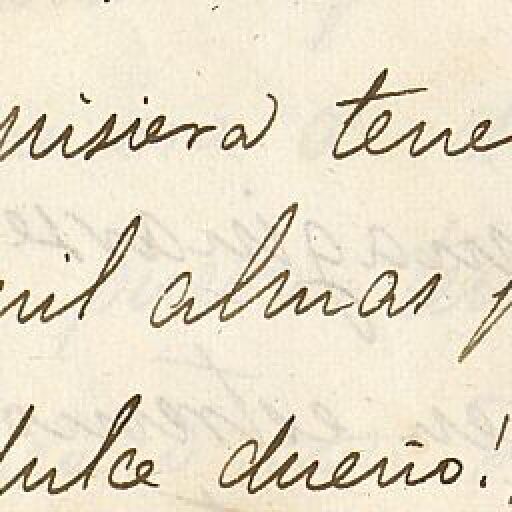 quisiera tene
mil almas p
dulce dueño!